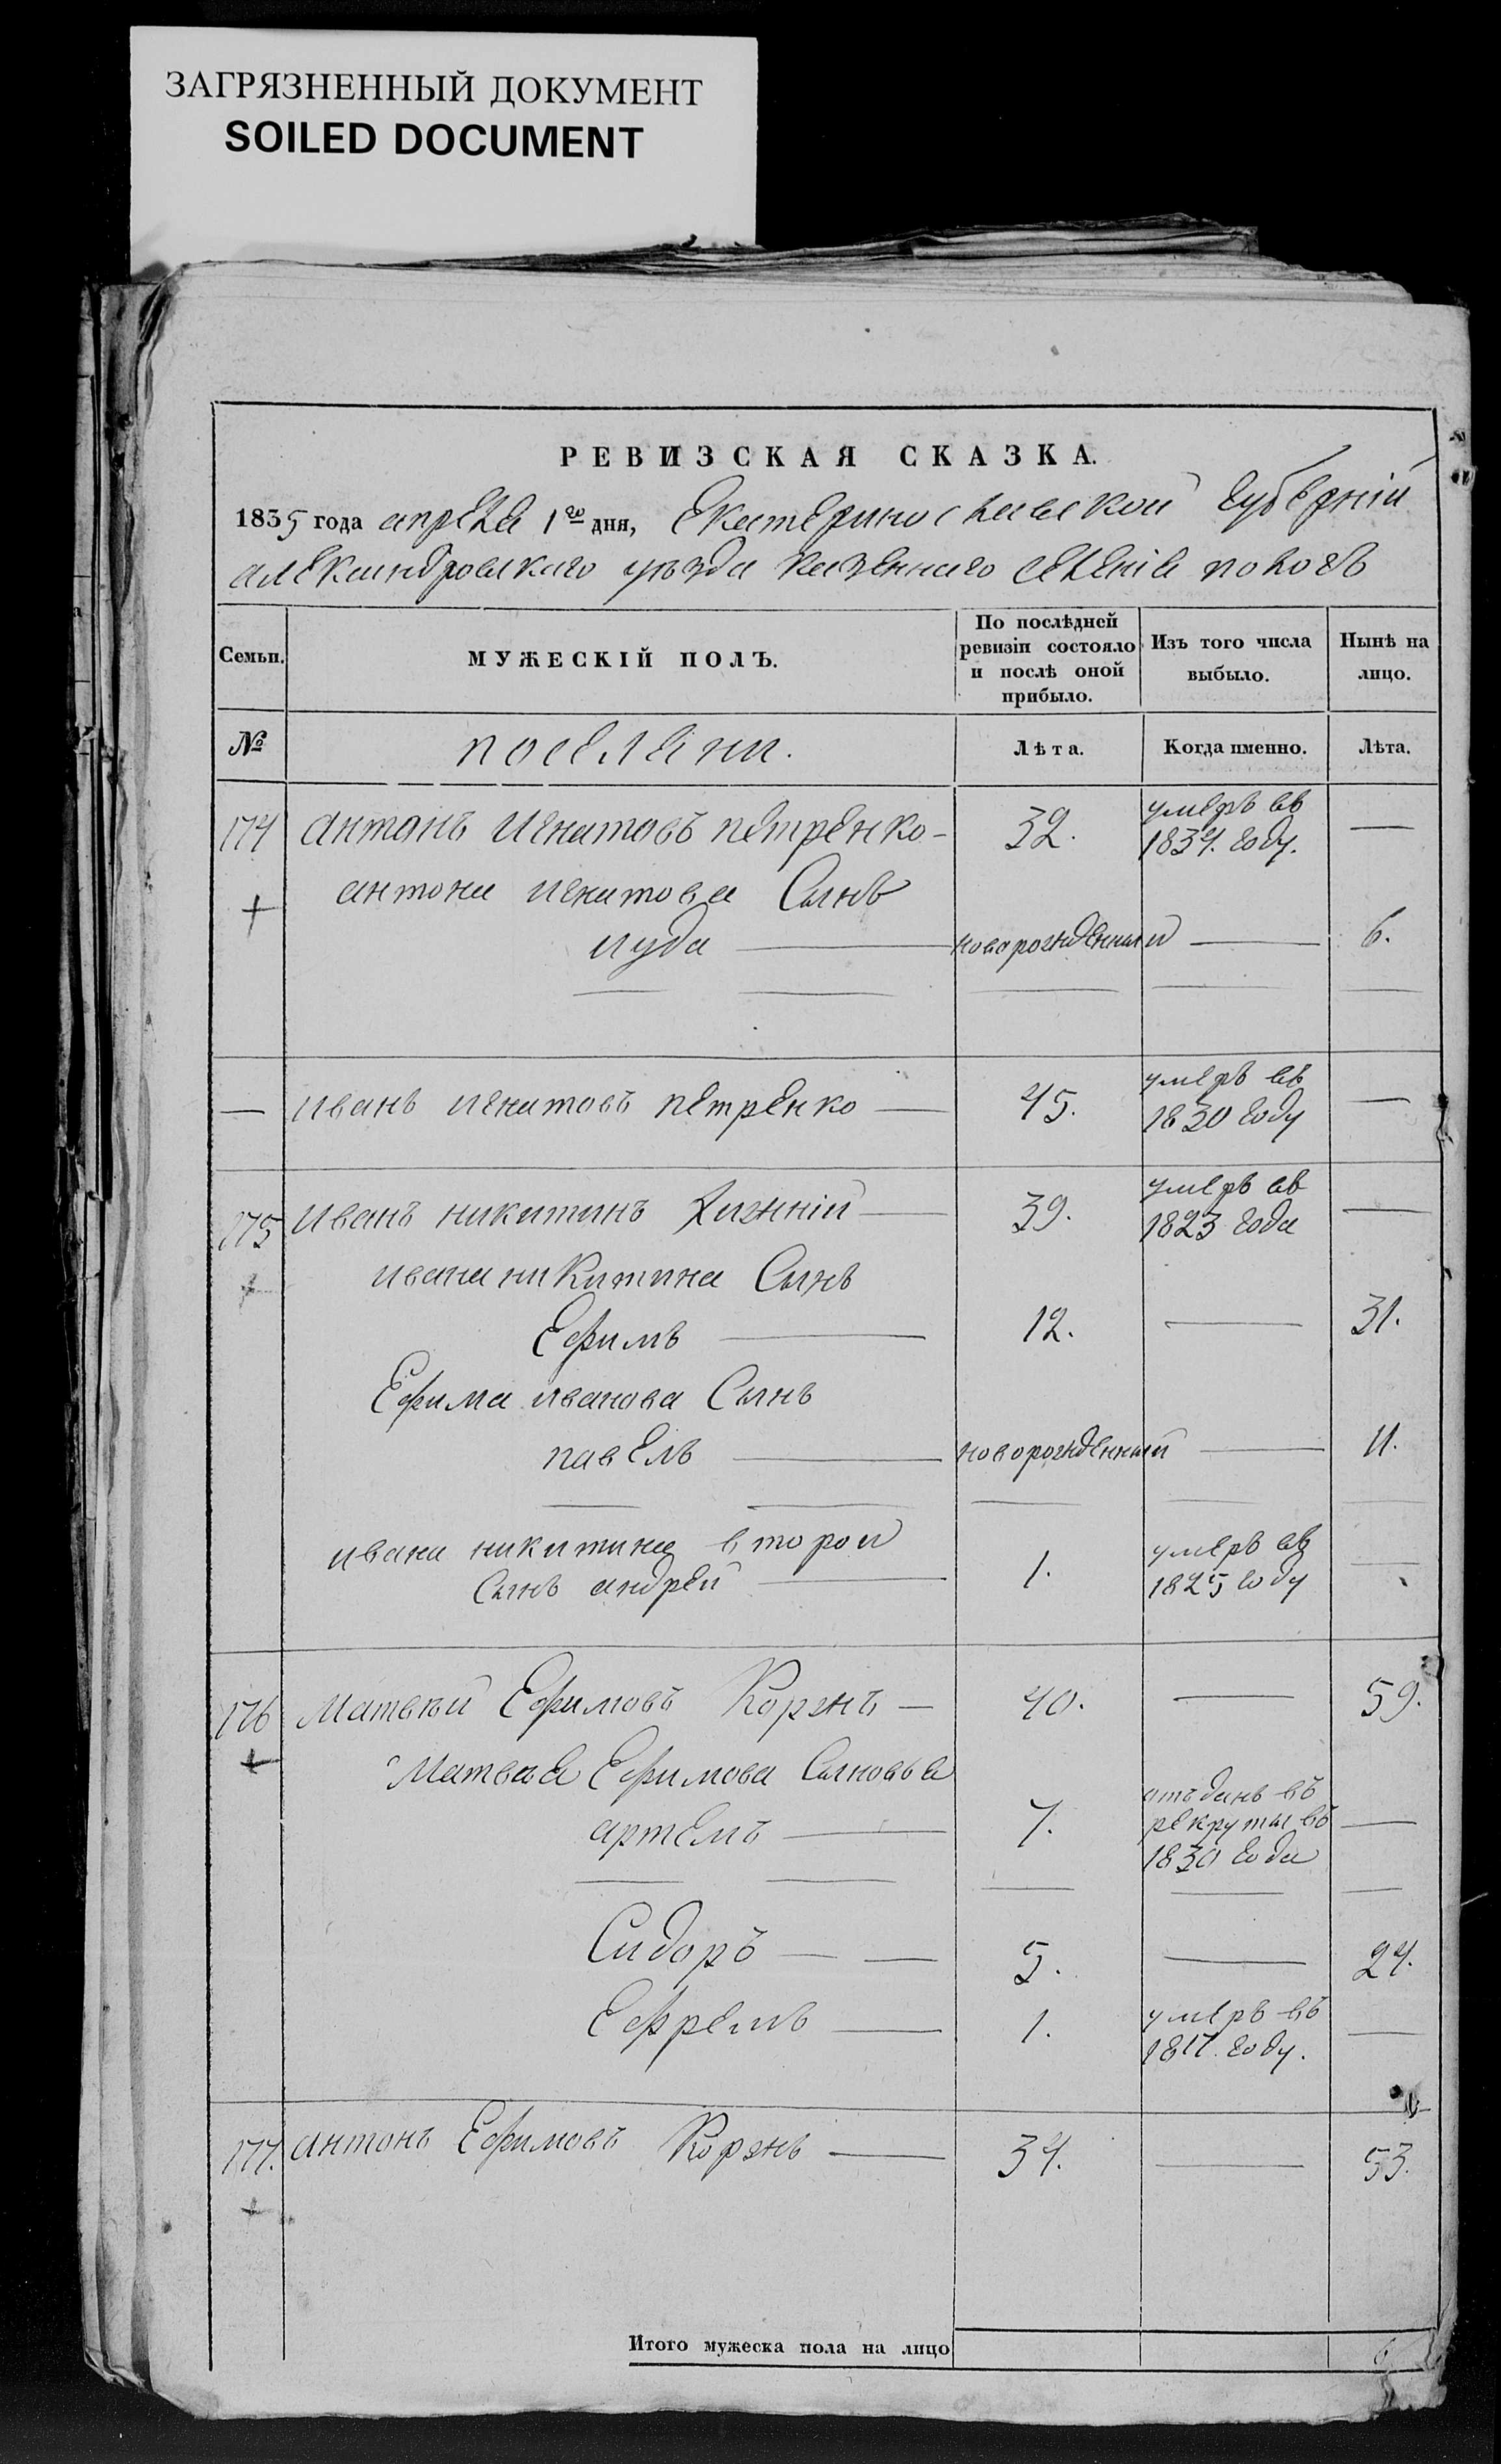 ЗАГРЯЗНЕННЫЙ ДОКУМЕНТ
SOILED DOCUMENT
РЕВИЗСКАЯ СКАЗКА.
1835 года апреля 1го дня, Екатеринославской Губерніи
александровскаго уѣзда казеннаго селенія пологъ
Семьи.
МУЖЕСКІЙ ПОЛЪ.
По послѣдней ревизіи состояло и послѣ оной прибыло.
Изъ того числа выбыло.
Нынѣ на лицо.
№ поселяни. Лѣта. Когда именно. Лѣта.
174 антонъ игнатовъ петренко - 32. умеръ въ 1834. году. —
антона игнатова Сынъ
иуда — новорожденный — 6.
— иванъ игнатовъ петренко — 45. умеръ въ 1830 году —
175 иванъ никитинъ — 39. умеръ въ 1823 года —
ивана никитина Сынъ
Ефимъ — 12. — 31.
Ефима иванова Сынъ
павелъ — новорожденный — 11.
ивана никитина второй
Сынъ андрей — 1. умеръ въ 1825 году —
176 матвѣй Ефимовъ Коржъ — 40. — 59.
Матвѣя Ефимова Сыновья
артемъ — 7. отъданъ въ рекруты въ 1830 года —
Сидоръ — — 5. — 24.
Ефремъ — 1. умеръ въ 1817. году. —
177. антонъ Ефимовъ Коржъ — 34. — 53.
Итого мужеска пола на лицо 6